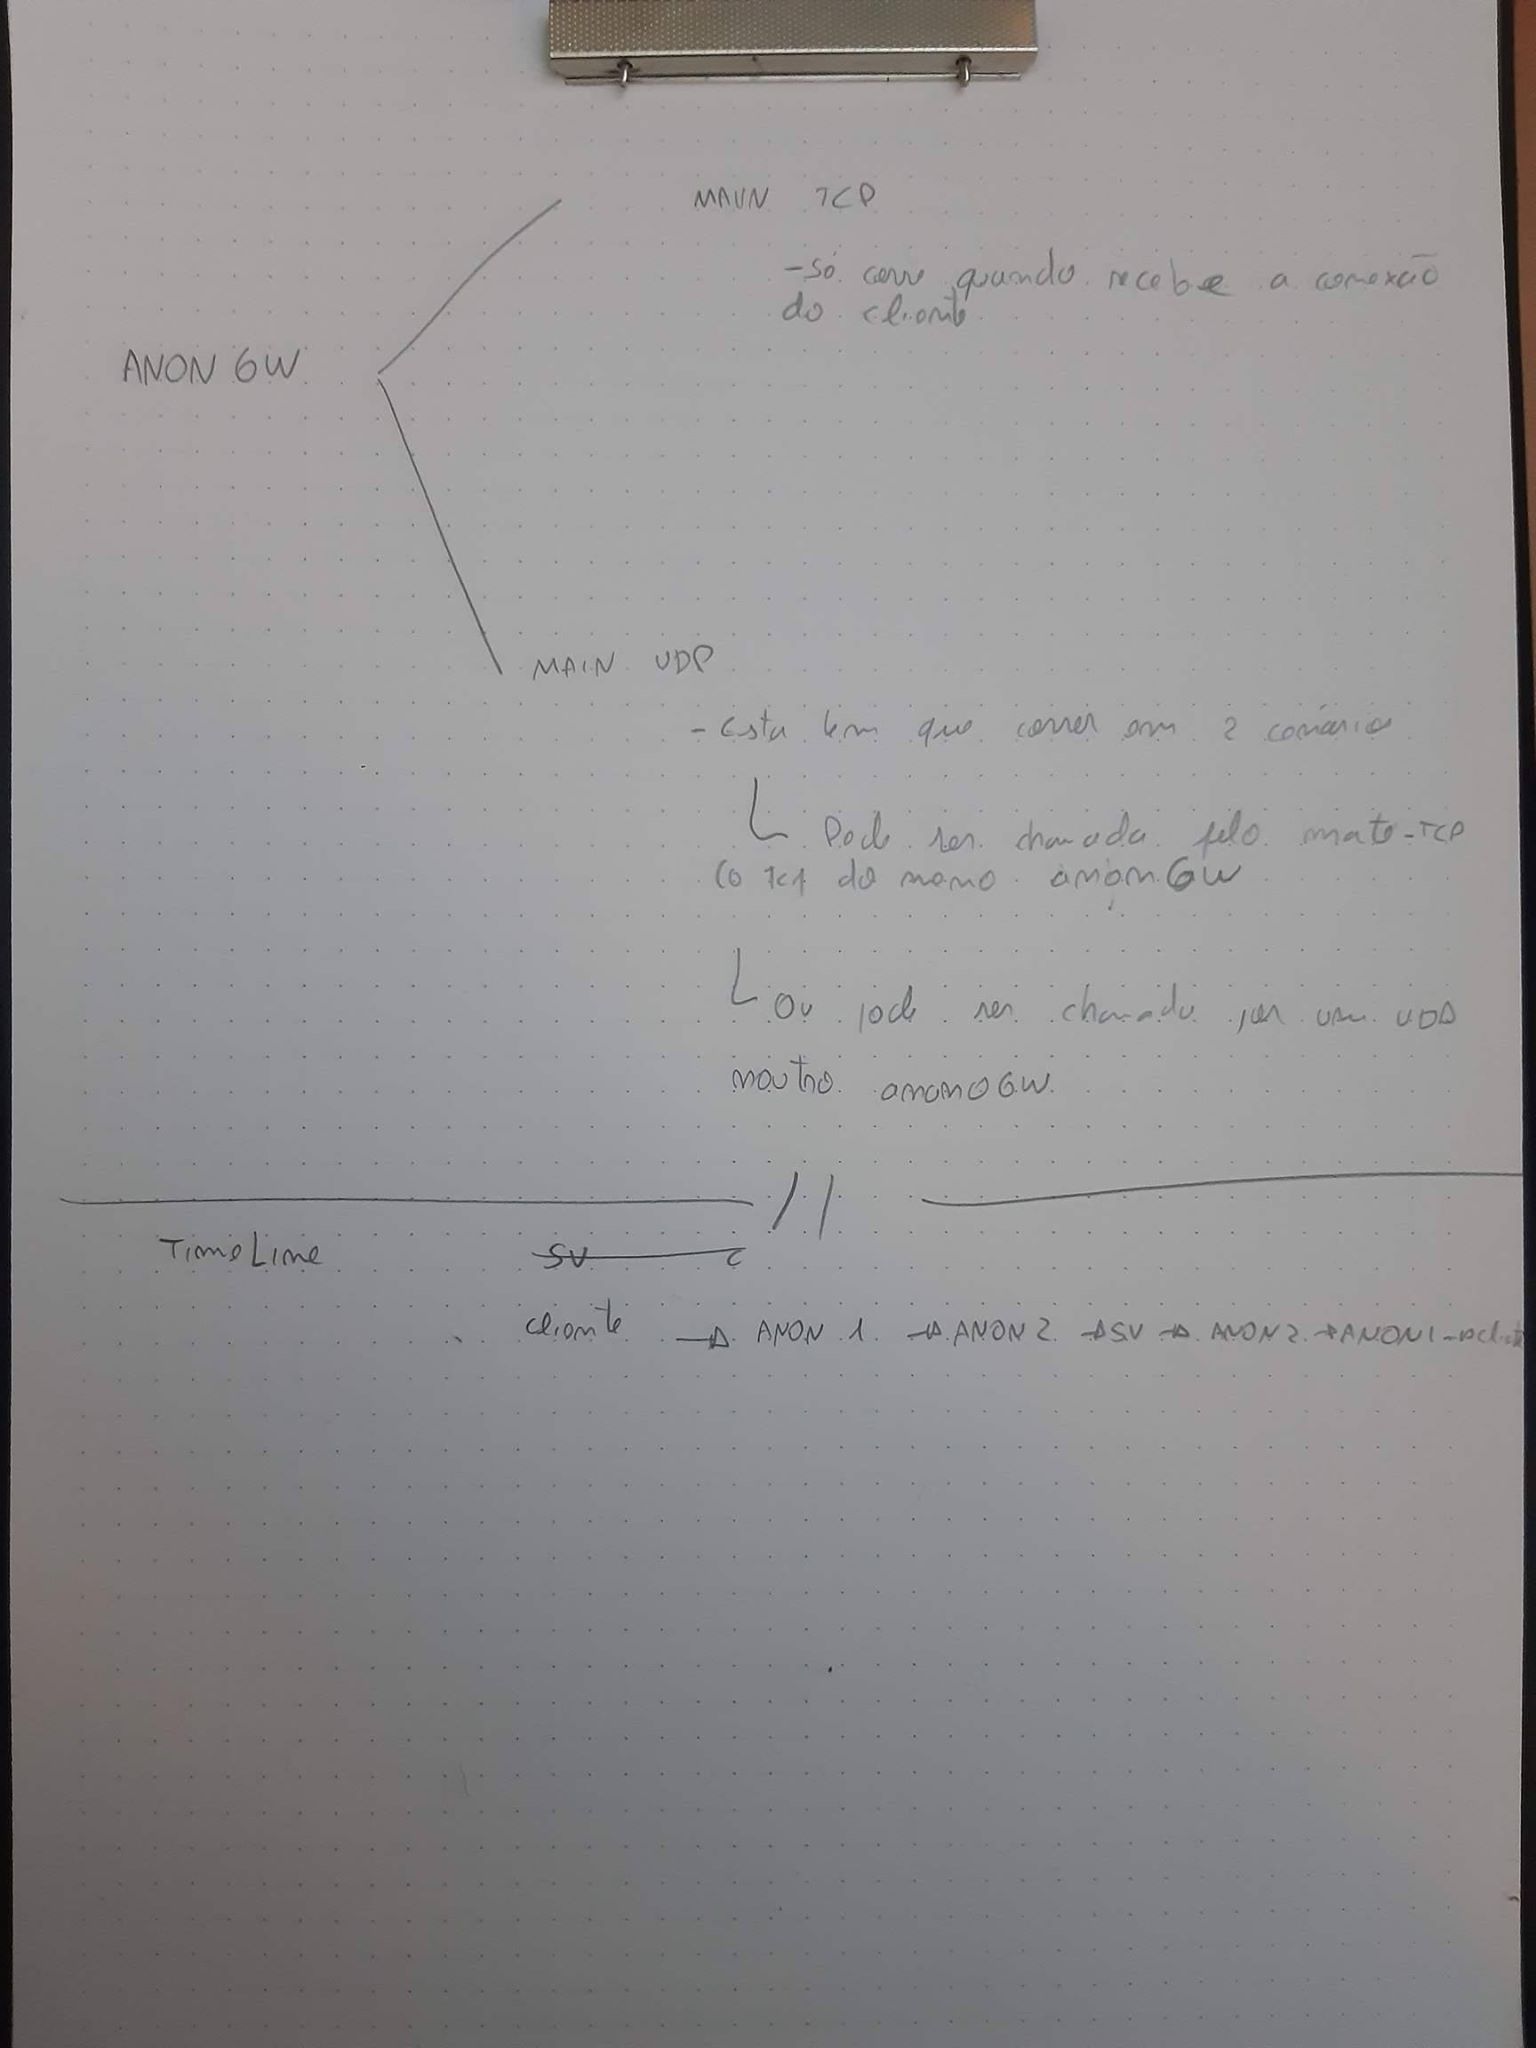 MAIN TCP
- Só corre quando recebe a conexão
do cliente
ANON GW
MAIN UDP
- Esta tem que correr em 2 cenários
Pode ser chamada pelo mate-TCP
(o TCP do mesmo anonGW
Ou pode ser chamado por um UDP
noutro anonoGW
TimeLine
SV C
cliente → ANON 1 → ANON 2 → SV → ANON 2 → ANON1 →